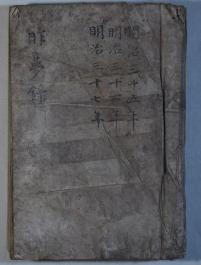 明治三十五年
明治三十六年
明治三十七年
昨夢録